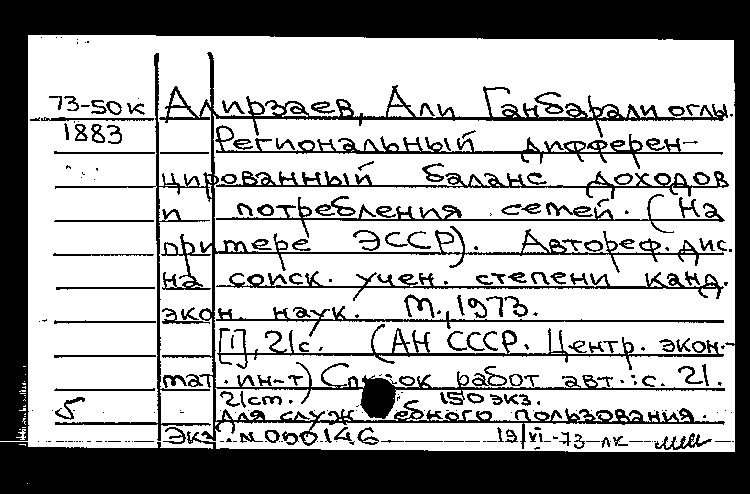 73-50к Алирзаев, Али Ганбарали оглы.
1883 Региональный дифферен-
цированный баланс доходов
и потребления семей. (На
примере ЭССР). Автореф. дис.
на соиск. учен. степени канд.
экон. наук. М., 1973.
[1], 21с. (АН СССР. Центр. экон.-
мат. ин-т) Список работ авт.: с. 21.
21cm. 150 экз.
5 Для служебного пользования.
Экз. N 000146 19/VI-73 лк